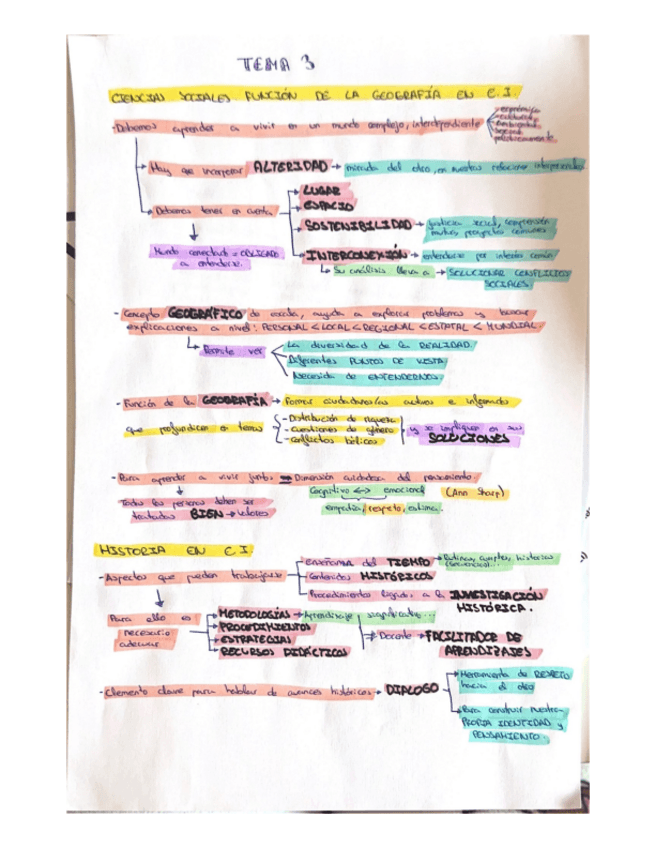 TEMA 3
CIENCIAS SOCIALES FUNCIÓN DE LA GEOGRAFÍA EN E.I.
- Debemos aprender a vivir en un mundo complejo, interdependiente
- económica
Hay que incorporar ALTERIDAD → mirada del otro, en nuestras relaciones interpersonales
LUGAR
Debemos tener en cuenta
ESPACIO
SOSTENIBILIDAD → justicia social, comprensión
mutua, proyectos comunes
Mundo conectado = OBLIGADO
a entenderse.
INTERCONEXIÓN → entenderse por interés común
Su análisis lleva a → SOLUCIONAR CONFLICTOS
SOCIALES.
- Concepto GEOGRÁFICO de escala, ayuda a explorar problemas y buscar
explicaciones a nivel: PERSONAL < LOCAL < REGIONAL < ESTATAL < MUNDIAL.
Permite ver
La diversidad de la REALIDAD.
Diferentes PUNTOS DE VISTA
Necesidad de ENTENDERNOS.
- Función de la GEOGRAFÍA → Formar ciudadanos/as activos e informados
que profundicen en temas
- Distribución de riqueza
- Cuestiones de género
- Conflictos bélicos
y se impliquen en sus
SOLUCIONES
- Para aprender a vivir juntos = Dimensión cuidadosa del pensamiento.
Cognitivo ↔ emocional (Ann Sharp)
Todas las personas deben ser
tratadas BIEN → valores
empatía, respeto, estima.
HISTORIA EN E.I.
- Aspectos que pueden trabajarse
Enseñanza del TIEMPO → Rutinas, cuentos, historias
(secuencias)...
Contenidos HISTÓRICOS
Procedimientos ligados a la INVESTIGACIÓN
HISTÓRICA.
Para ello es
necesario
adecuar
METODOLOGÍAS → Aprendizaje significativo...
PROCEDIMIENTOS
ESTRATEGIAS
RECURSOS DIDÁCTICOS
Docente → FACILITADOR DE
APRENDIZAJES
- Elemento clave para hablar de avances históricos → DIALOGO
Herramienta de RESPETO
hacia el otro
Para construir nuestra
PROPIA IDENTIDAD y
PENSAMIENTO.